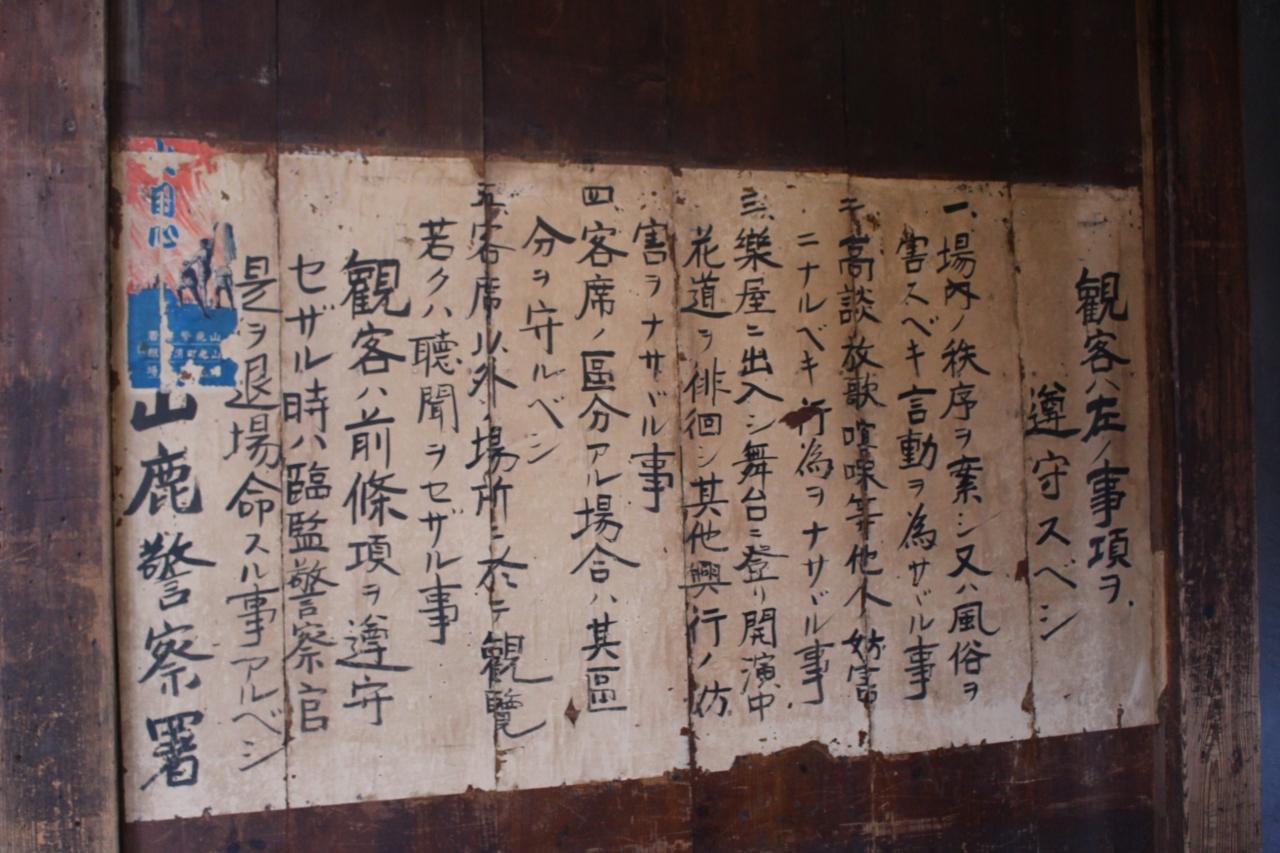 観客ハ左ノ事項ヲ
遵守スベシ
一、場内ノ秩序ヲ棄シ又ハ風俗ヲ
害スベキ言動ヲ為サヾル事
二、高談放歌喧噪等他人妨害
ニナルベキ行為ヲナサヾル事
三、樂屋ニ出入シ舞台ニ登リ開演中
花道ヲ徘徊シ其他興行ノ妨
害ヲナサヾル事
四、客席ノ區分アル場合ハ其區
分ヲ守ルベシ
五、客席ル外ノ場所ニ於テ観覽
若クハ聴聞ヲセザル事
観客ハ前條項ヲ遵守
セザル時ハ臨監警察官
是ヲ退場命スル事アルベシ
山鹿警察署